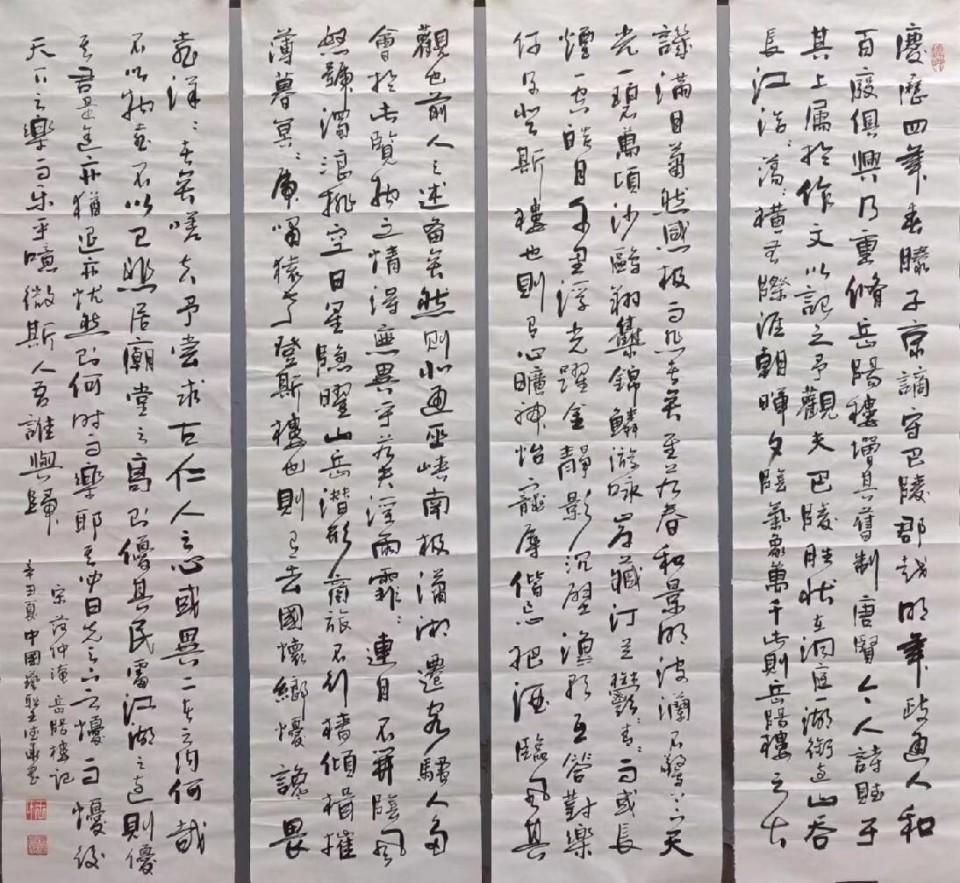 慶曆四年春滕子京謫守巴陵郡越明年政通人和
百廢俱興乃重脩岳陽樓增其舊制唐賢今人詩賦于
其上屬於作文以記之予觀夫巴陵勝狀在洞庭湖銜遠山吞
長江浩〻蕩〻橫無際涯朝暉夕陰氣象萬千此則岳陽樓之大
譏滿目蕭然感極而悲者矣至若春和景明波瀾不驚上下天
光一碧萬頃沙鷗翔集錦鱗游泳岸汀兰鬱〻青〻而或長
煙一空皓月千里浮光躍金靜影沉璧漁歌互答樂
何登斯樓也則有心曠神怡寵辱偕忘把酒臨風其
觀也前人之述備矣然則北通巫峽南極瀟湘遷客騷人多
會於此覽物之情得無異乎若夫淫雨霏〻連月不開陰風
怒號濁浪排空日星隱曜山岳潛形商旅不行檣傾楫摧
薄暮冥〻虎嘯猿登斯樓也則有去國懷鄉憂讒畏
喜洋〻者矣嗟夫予嘗求古仁人之心或異二者之何哉
不以物喜不以己悲居廟堂之高則憂其民江湖之遠則憂
其君是進亦退亦憂然則何時而樂耶其必曰先天下之憂而憂後
天下之樂而乐乎噫微斯人吾誰與歸
宋范仲淹岳陽樓記
辛丑夏中國書